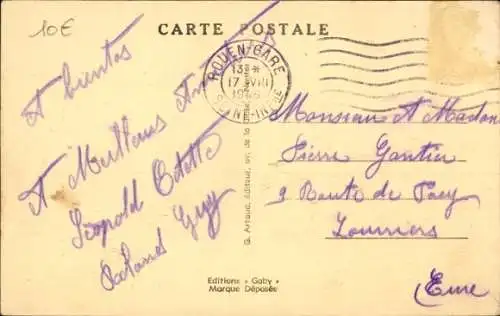 10€
CARTE POSTALE
ROUEN-GARE
13 *
17 VIII
SEINE-INFRE
A bientot
Amitiés
et Meilleurs
Léopold Odette
Roland Guy
G. Artaud, éditeur,
Editions « Gaby »
Marque Déposée
Monsieur et Madame
Pierre Gantier
9 Route de Pacy
Louviers
Eure